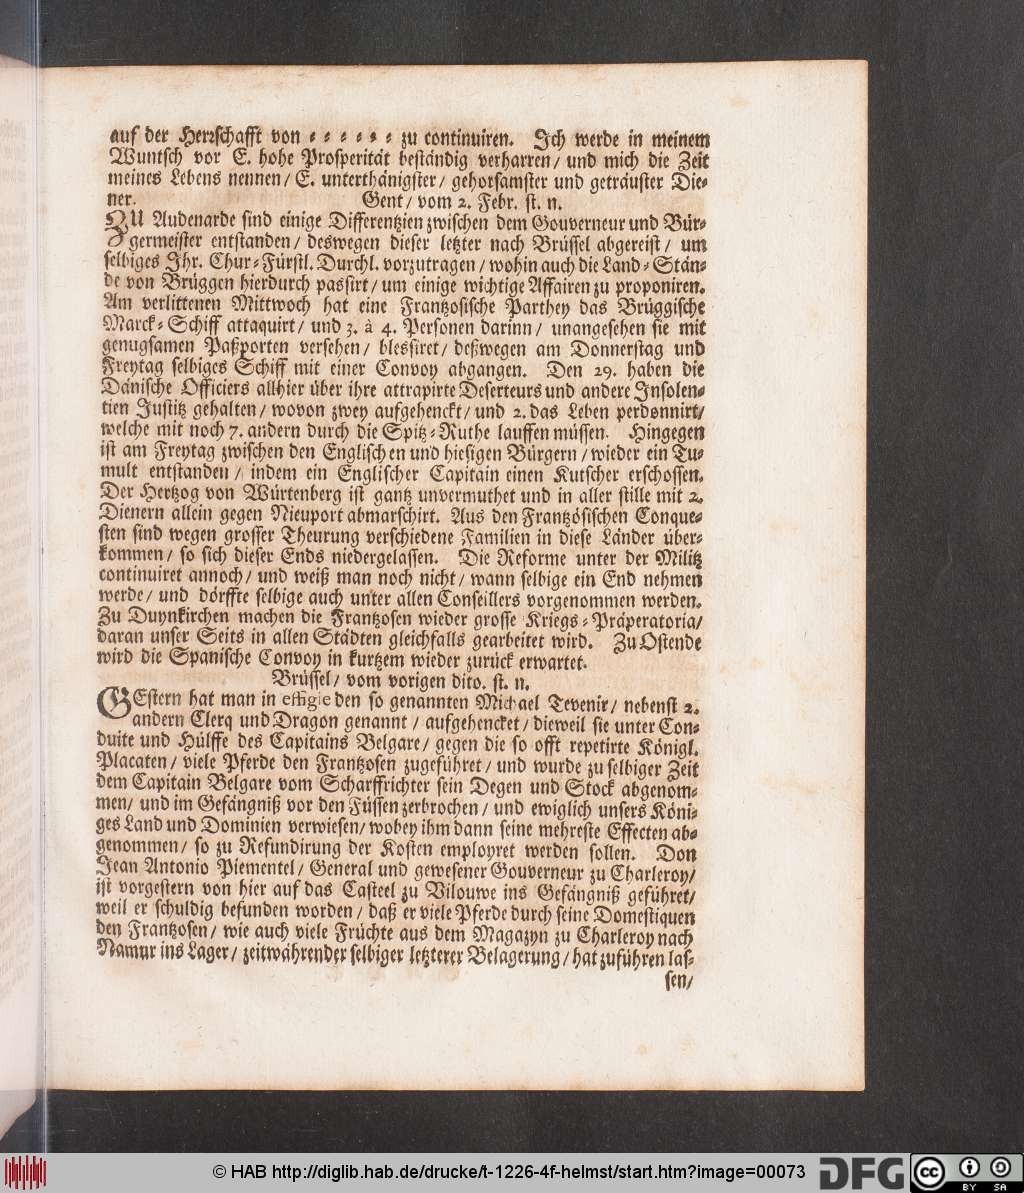 auf der Herrschafft von = = = = = = zu continuiren. Ich werde in meinem
Wuntsch vor E. hohe Prosperität beständig verharren/ und mich die Zeit
meines Lebens nennen/ E. unterthänigster/ gehorsamster und geträuster Die=
ner. Gent/ vom 2. Febr. st. n.
ZU Audenarde sind einige Differentzien zwischen dem Gouverneur und Bür=
germeister entstanden/ deswegen dieser letzter nach Brüssel abgereist/ um
selbiges Ihr. Chur=Fürstl. Durchl. vorzutragen/ wohin auch die Land=Stän=
de von Brüggen hierdurch passirt/ um einige wichtige Affairen zu proponiren.
Am verlittenen Mittwoch hat eine Frantzosische Parthey das Brüggische
Marck=Schiff attaquirt/ und 3. à 4. Personen darinn/ unangesehen sie mit
genugsamen Paßporten versehen/ blessiret/ deßwegen am Donnerstag und
Freytag selbiges Schiff mit einer Convoy abgangen. Den 29. haben die
Dänische Officiers allhier über ihre attrapirte Deserteurs und andere Insolen=
tien Justitz gehalten/ wovon zwey aufgehenckt/ und 2. das Leben perdonnirt/
welche mit noch 7. andern durch die Spitz=Ruthe lauffen müssen. Hingegen
ist am Freytag zwischen den Englischen und hiesigen Bürgern/ wieder ein Tu=
mult entstanden/ indem ein Englischer Capitain einen Kutscher erschossen.
Der Hertzog von Würtenberg ist gantz unvermuthet und in aller stille mit 2.
Dienern allein gegen Nieuport abmarschirt. Aus den Frantzösischen Conque=
sten sind wegen grosser Theurung verschiedene Familien in diese Länder über=
kommen/ so sich dieser Ends niedergelassen. Die Reforme unter der Militz
continuiret annoch/ und weiß man noch nicht/ wann selbige ein End nehmen
werde/ und dörffte selbige auch unter allen Conseillers vorgenommen werden.
Zu Duynkirchen machen die Frantzosen wieder grosse Kriegs=Präperatoria/
daran unser Seits in allen Städten gleichfalls gearbeitet wird. Zu Ostende
wird die Spanische Convoy in kurtzem wieder zurück erwartet.
Brüssel/ vom vorigen dito. st. n.
GEstern hat man in effigie den so genannten Michael Tevenir/ nebenst 2.
andern Clerq und Dragon genannt/ aufgehencket/ dieweil sie unter Con=
duite und Hülffe des Capitains Belgare/ gegen die so offt repetirte Königl.
Placaten/ viele Pferde den Frantzosen zugeführet/ und wurde zu selbiger Zeit
dem Capitain Belgare vom Scharffrichter sein Degen und Stock abgenom=
men/ und im Gefängniß vor den Füssen zerbrochen/ und ewiglich unsers Köni=
ges Land und Dominien verwiesen/ wobey ihm dann seine mehreste Effecten ab=
genommen/ so zu Refundirung der Kosten employret werden sollen. Don
Jean Antonio Piementel/ General und gewesener Gouverneur zu Charleroy/
ist vorgestern von hier auf das Casteel zu Vilouwe ins Gefängniß geführet/
weil er schuldig befunden worden/ daß er viele Pferde durch seine Domestiquen
den Frantzosen/ wie auch viele Früchte aus dem Magazyn zu Charleroy nach
Namur ins Lager/ zeitwährender selbiger letzterer Belagerung/ hat zuführen las=
sen/
© HAB http://diglib.hab.de/drucke/t-1226-4f-helmst/start.htm?image=00073
DFG
cc BY SA